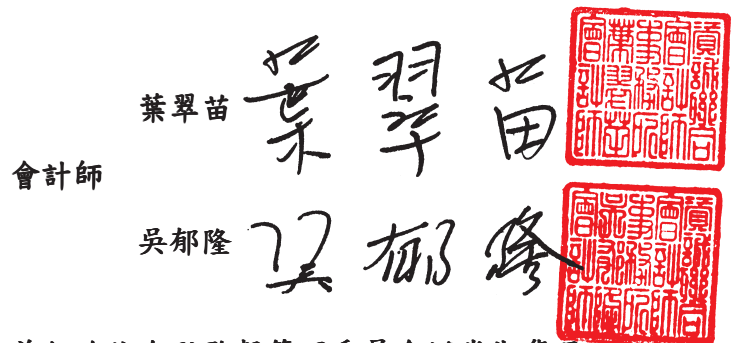 葉翠苗 葉翠苗
資誠聯合
會計師
事務所
葉翠苗
會計師
會計師
吳郁隆 吳郁隆
資誠聯合
會計師
事務所
吳郁隆
會計師